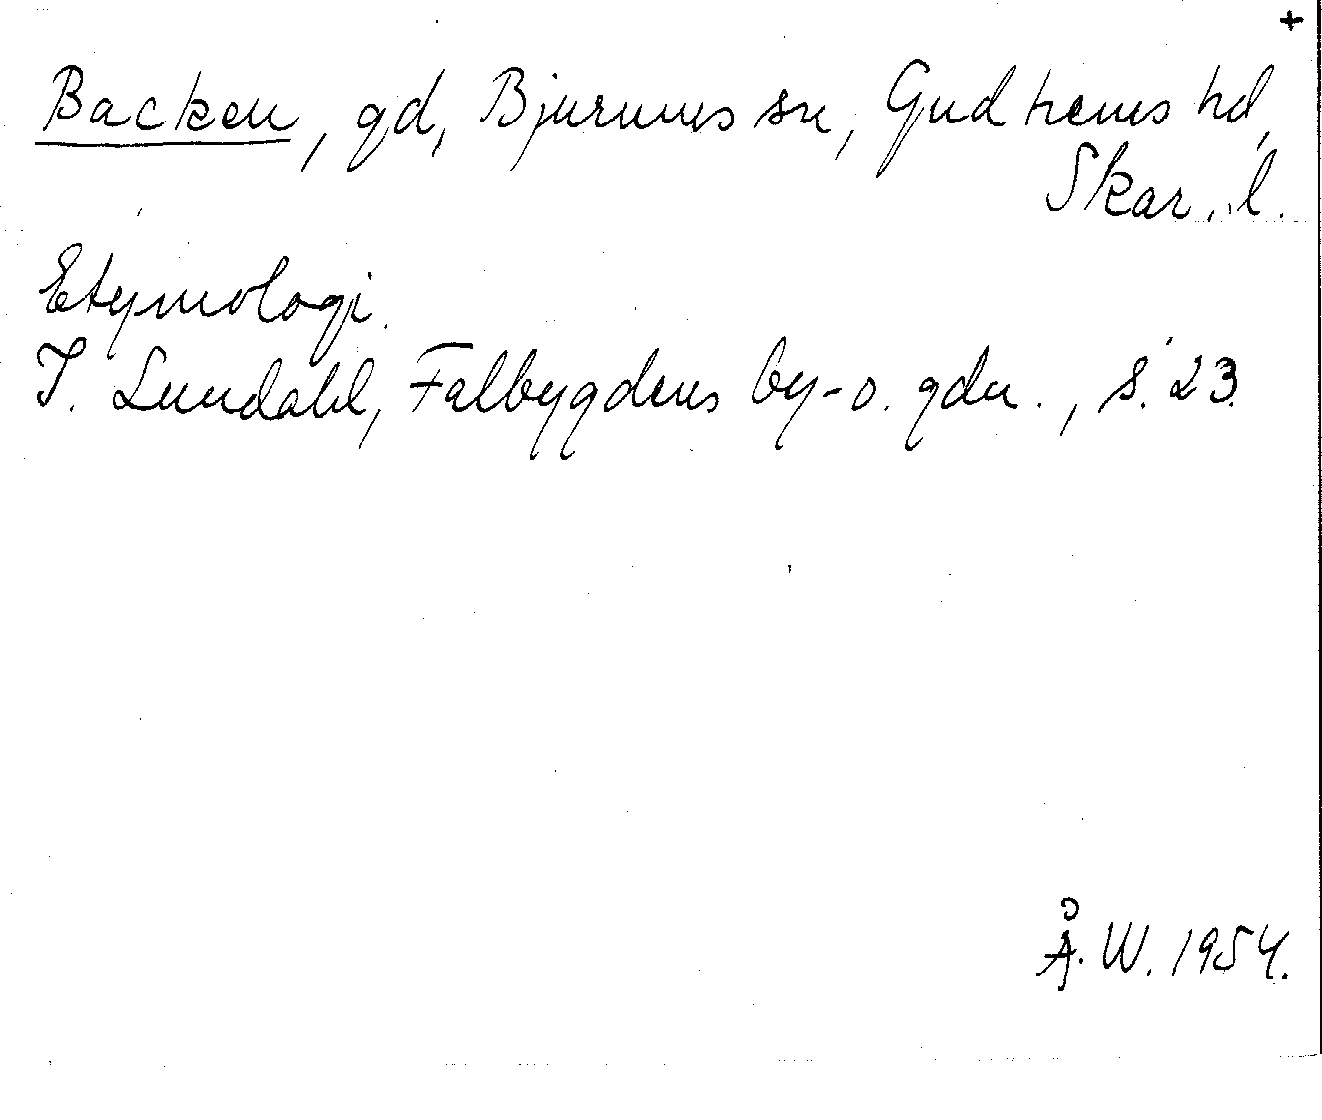 +
Backen, gd, Bjurums sn, Gudhems hd,
Skar. l.
Etymologi.
I. Lundahl, Falbygdens by- o. gdn., s. 23.
Å. W. 1954.